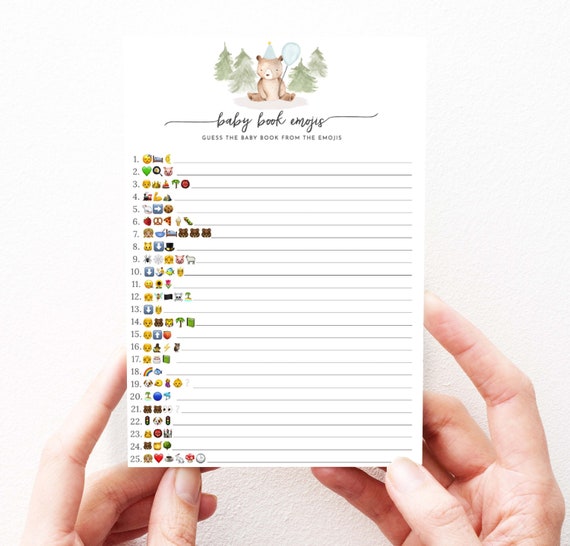 baby book emojis
GUESS THE BABY BOOK FROM THE EMOJIS
1.
2.
3.
4.
5.
6.
7.
8.
9.
10.
11.
12.
13.
14.
15.
16.
17.
18.
19.
20.
21.
22.
23.
24.
25.